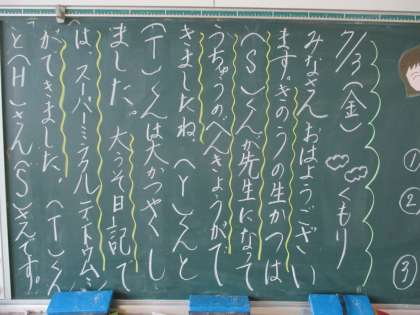 7/3(金) くもり
みなさん おはようござい
ます。きのうの生かつは
(S)くんが先生になって
うちゅうのべんきょうがで
きましたね。(Y)くんと
(T)くんは大かつやくし
ました。大うそ日記で
は、スーパーミラクル
ができました。(T)くん
と(H)さん(S)さんです。
①
②
③